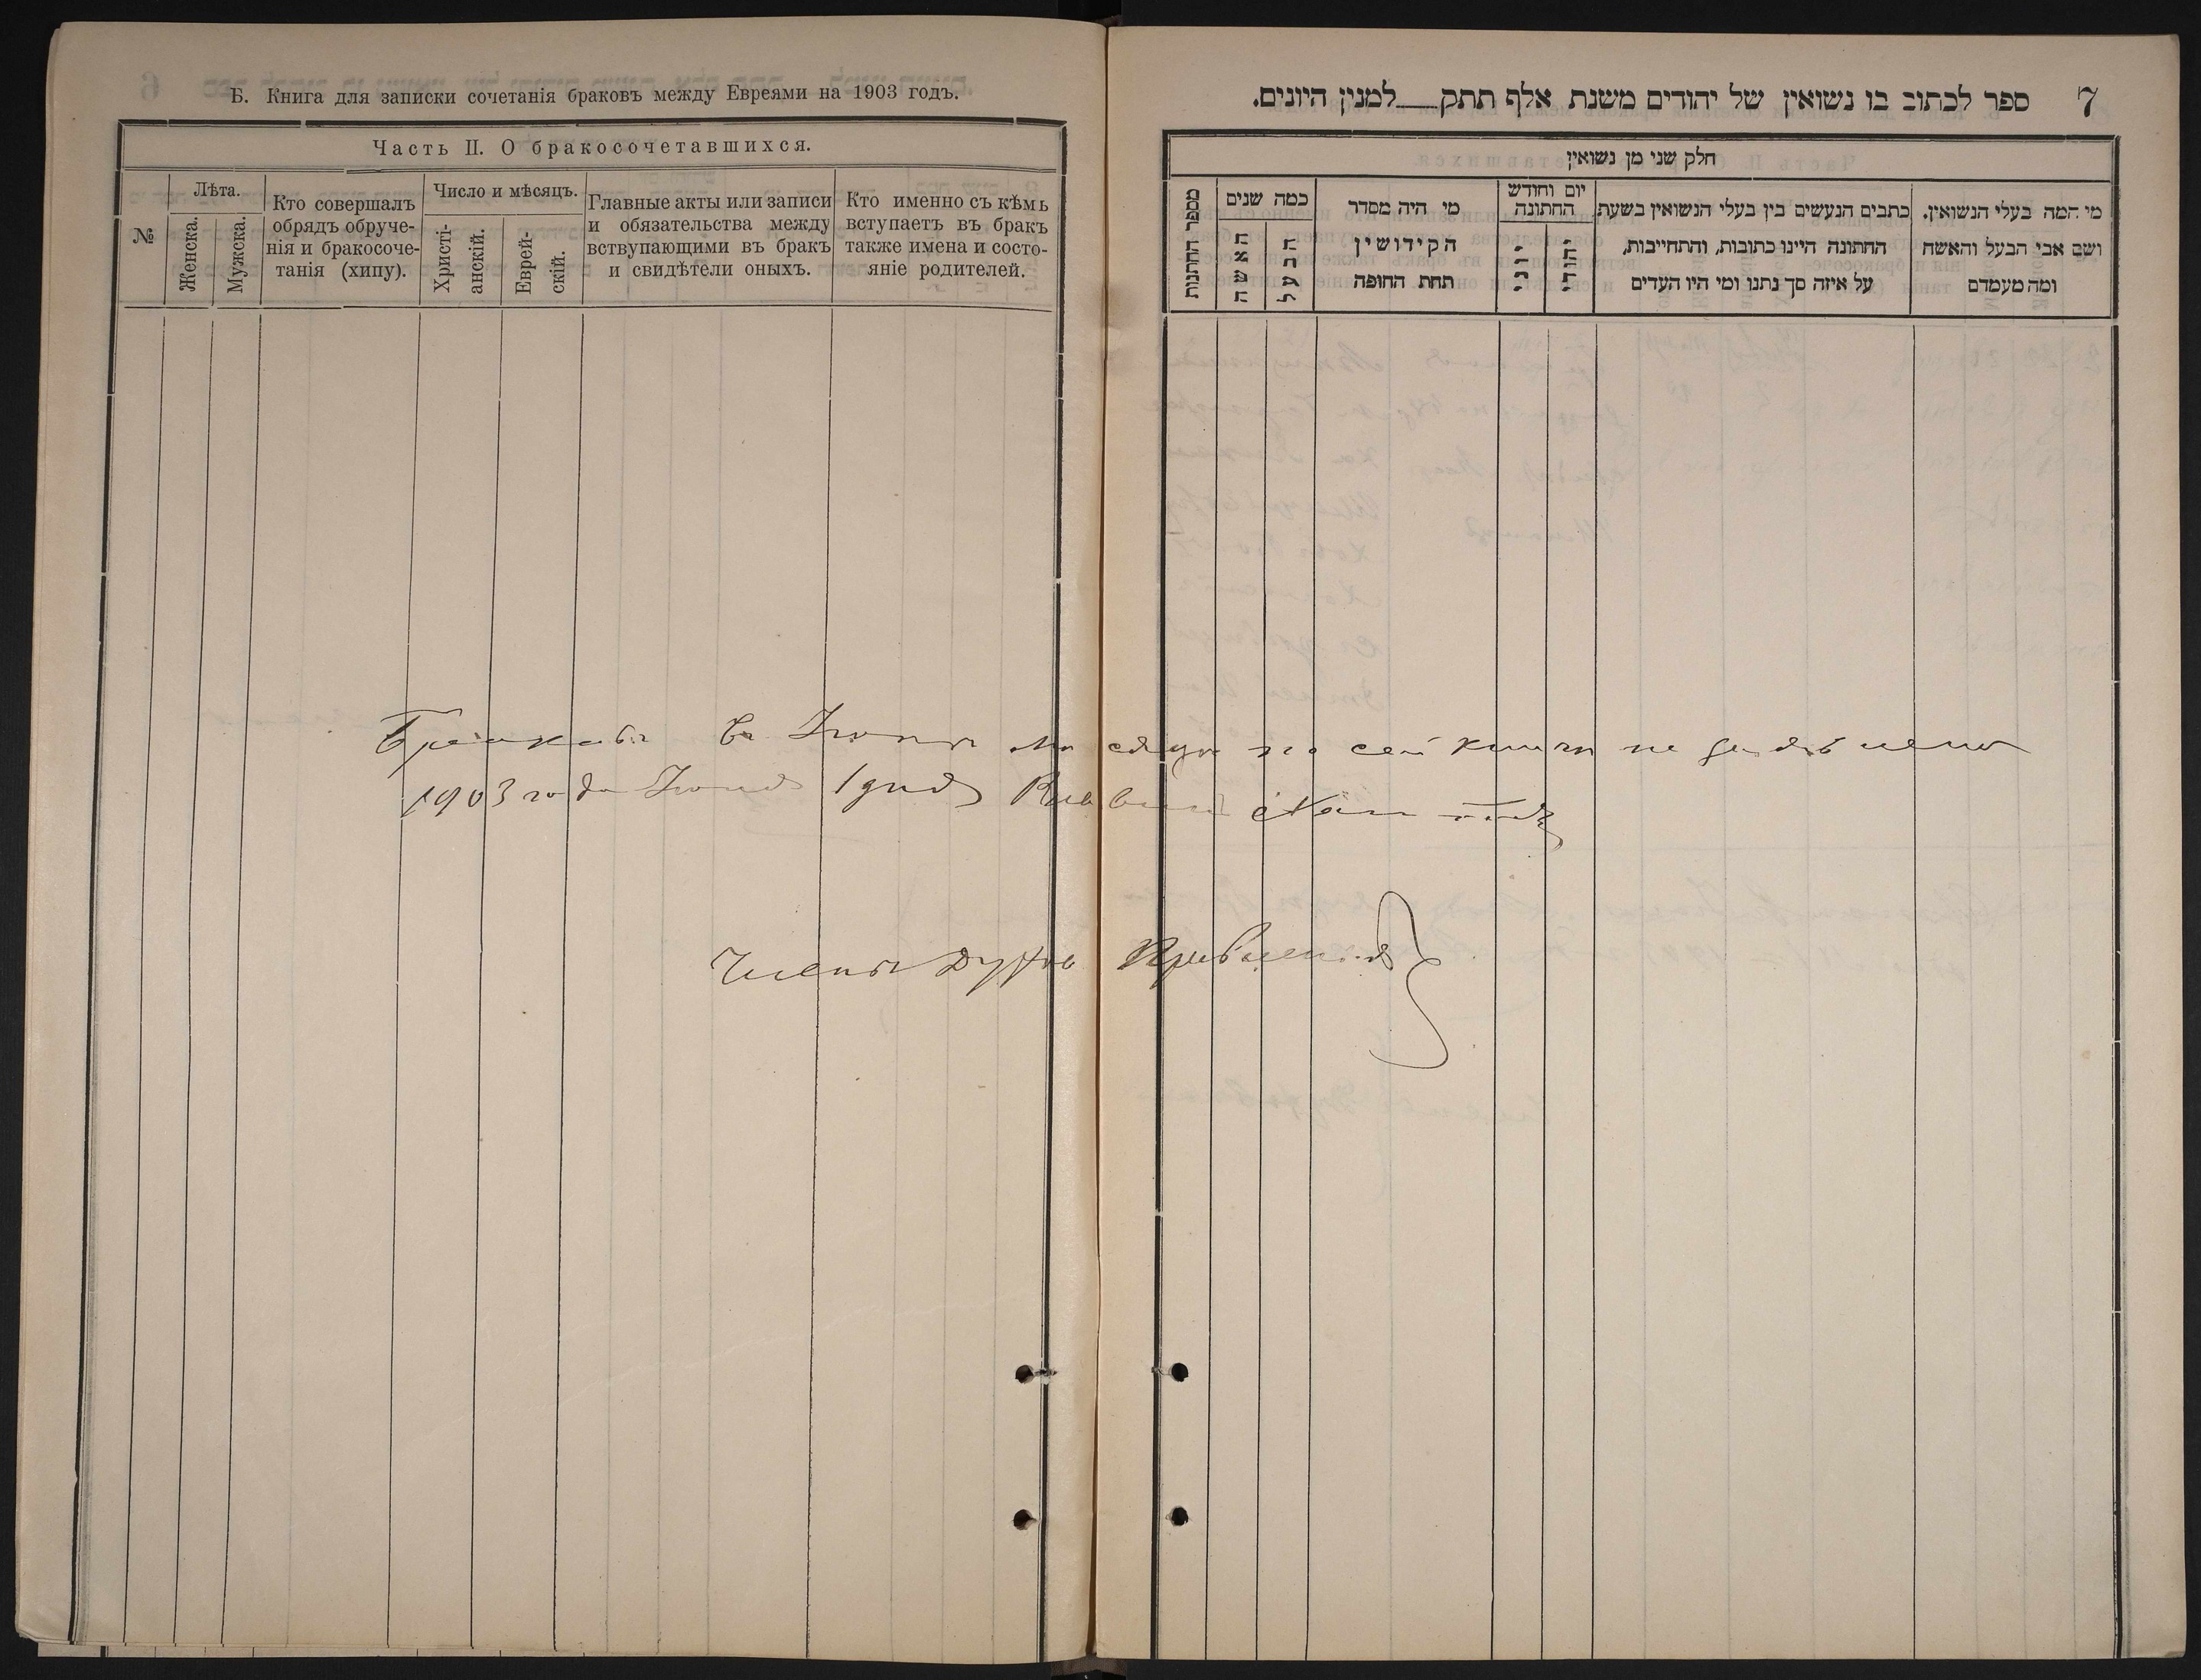 Б. Книга для записки сочетанія браковъ между Евреями на 1903 годъ.
Часть II. О бракосочетавшихся.
№
Лѣта.
Женска.
Мужска.
Кто совершалъ
обрядъ обруче-
нія и бракосоче-
танія (хипу).
Число и мѣсяцъ.
Христі-
анскій.
Еврей-
скій.
Главные акты или записи
и обязательства между
вствупающими въ бракъ
и свидѣтели оныхъ.
Кто именно съ кѣмъ
вступаетъ въ бракъ
также имена и состо-
яніе родителей.
7
ספר לכתוב בו נשואין של יהודים משנת אלף תתק למנין היונים.
חלק שני מן נשואין
מספר החתנות
כמה שנים
האשה
הבעל
מי היה מסדר
הקידושין
תחת החופה
יום וחודש
החתונה
יוני
יהודי
כתבים הנעשים בין בעלי הנשואין בשעת
החתונה היינו כתובות, והתחייבות,
על איזה סך נתנו ומי היו העדים
מי המה בעלי הנשואין.
ושם אבי הבעל והאשה
ומה מעמדם
Браковъ въ мѣсяцѣ по сей книги не
1903 года 1 дня Раввинъ
Членъ Духов Правленія